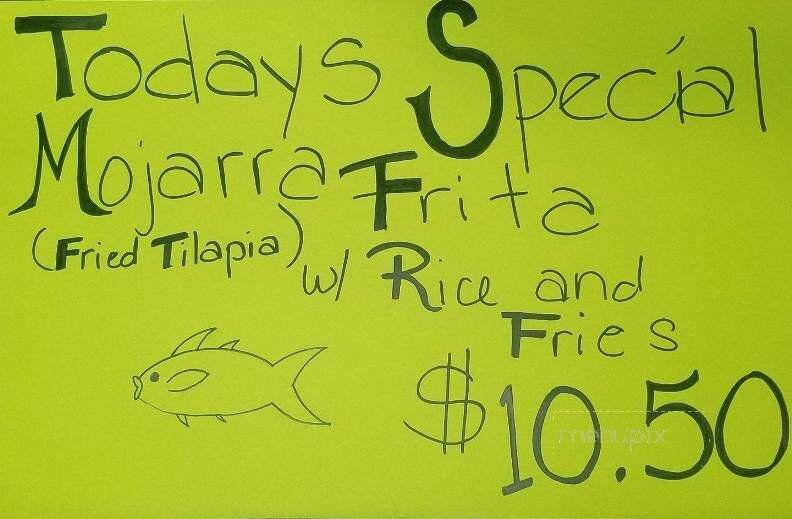 Todays Special
Mojarra Frita
(Fried Tilapia)
w/ Rice and
Fries
$10.50
menupix